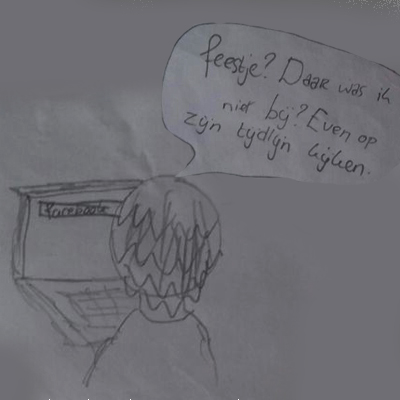 feestje? Daar was ik
niet bij? Even op
zijn tijdlijn kijken.
facebook